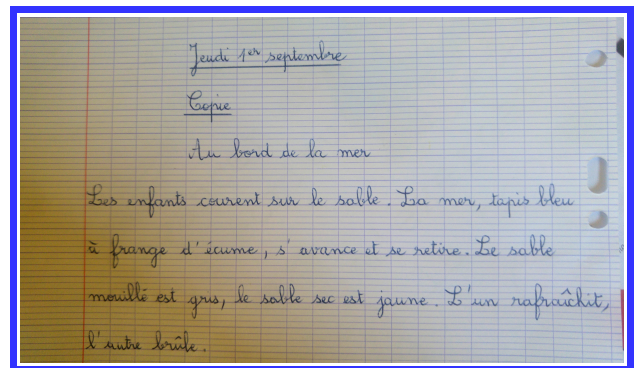 Jeudi 1er septembre
Copie
Au bord de la mer
Les enfants courent sur le sable. La mer, tapis bleu
à frange d'écume, s'avance et se retire. Le sable
mouillé est gris, le sable sec est jaune. L'un rafraîchit,
l'autre brûle.